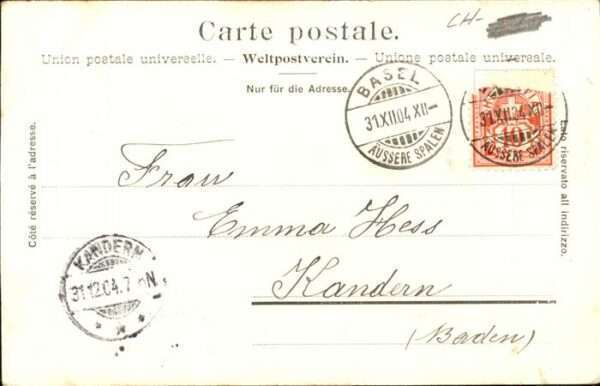 Carte postale.
CH-
Union postale universelle. — Weltpostverein. — Unione postale universale.
Nur für die Adresse.
BASEL
31.XII.04.XII—
ÄUSSERE SPALEN
31.XII.04.XII
10
ÄUSSERE SPALEN
Côté réservé à l'adresse.
Lato riservato all indirizzo.
Frau
Emma Hess
Kandern
(Baden)
KANDERN
31.12.04.7 N